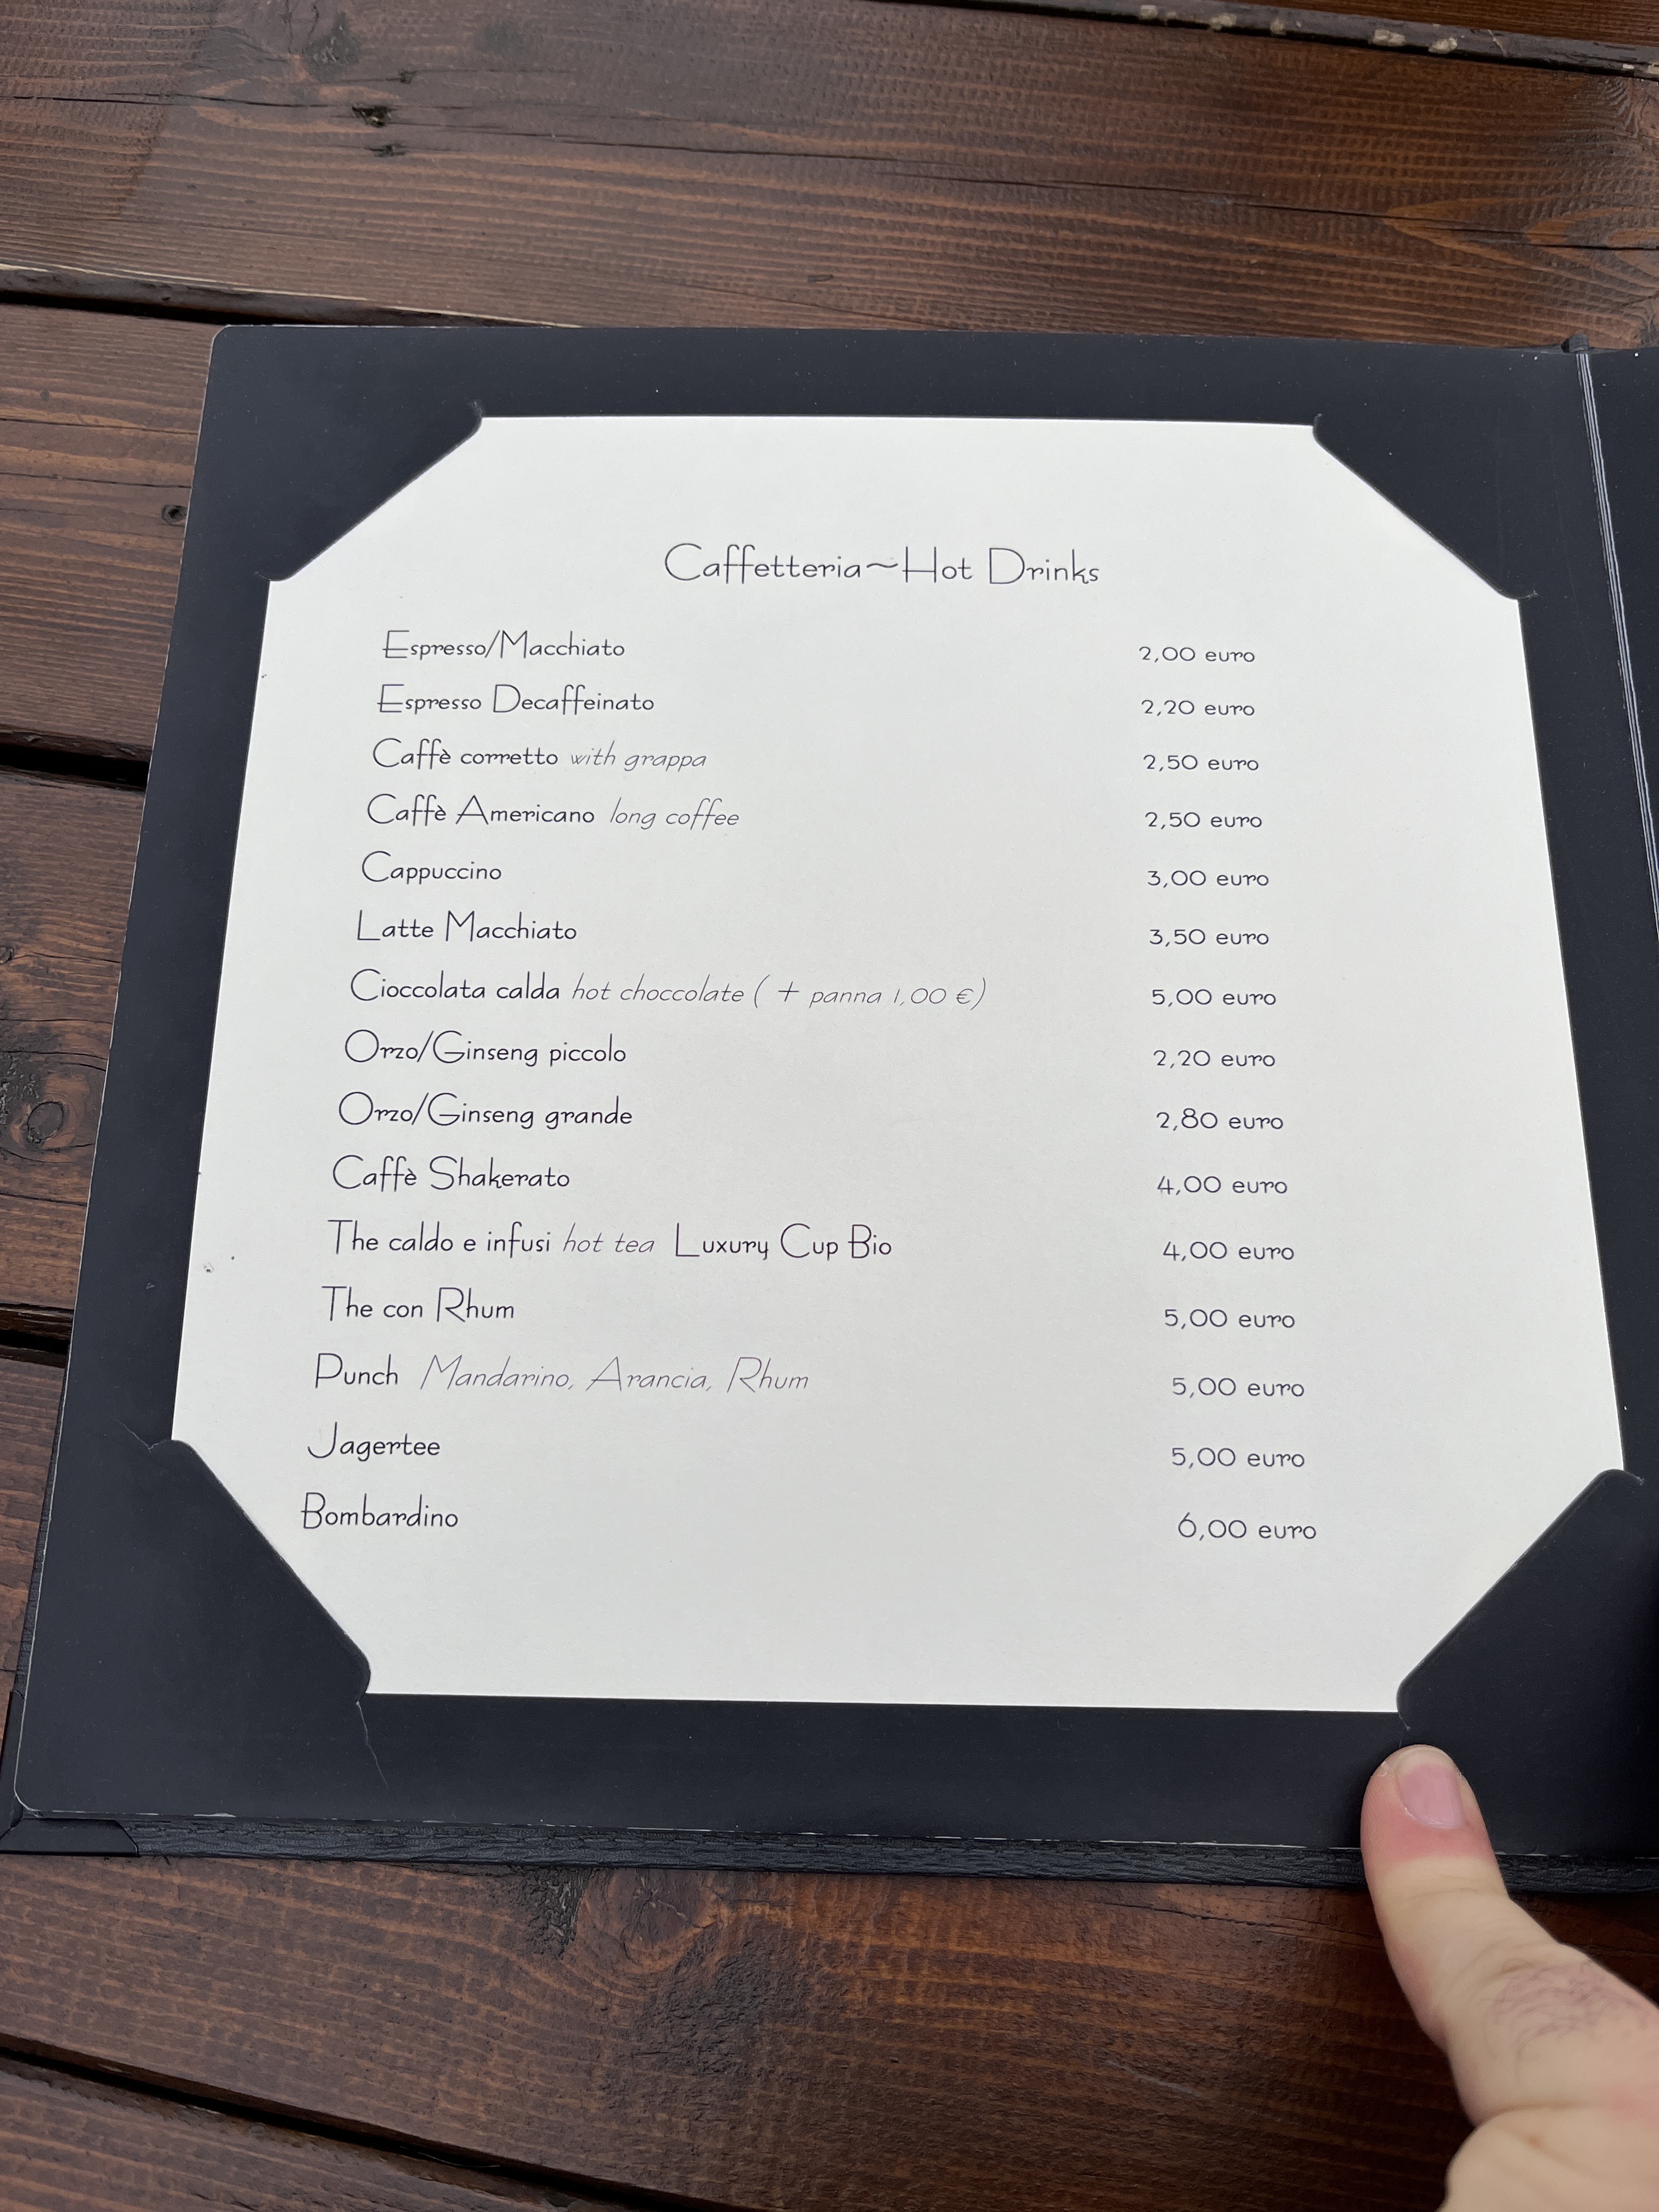 Caffetteria~Hot Drinks
Espresso/Macchiato 2,00 euro
Espresso Decaffeinato 2,20 euro
Caffè corretto with grappa 2,50 euro
Caffè Americano long coffee 2,50 euro
Cappuccino 3,00 euro
Latte Macchiato 3,50 euro
Cioccolata calda hot choccolate ( + panna 1,00 €) 5,00 euro
Orzo/Ginseng piccolo 2,20 euro
Orzo/Ginseng grande 2,80 euro
Caffè Shakerato 4,00 euro
The caldo e infusi hot tea Luxury Cup Bio 4,00 euro
The con Rhum 5,00 euro
Punch Mandarino, Arancia, Rhum 5,00 euro
Jagertee 5,00 euro
Bombardino 6,00 euro